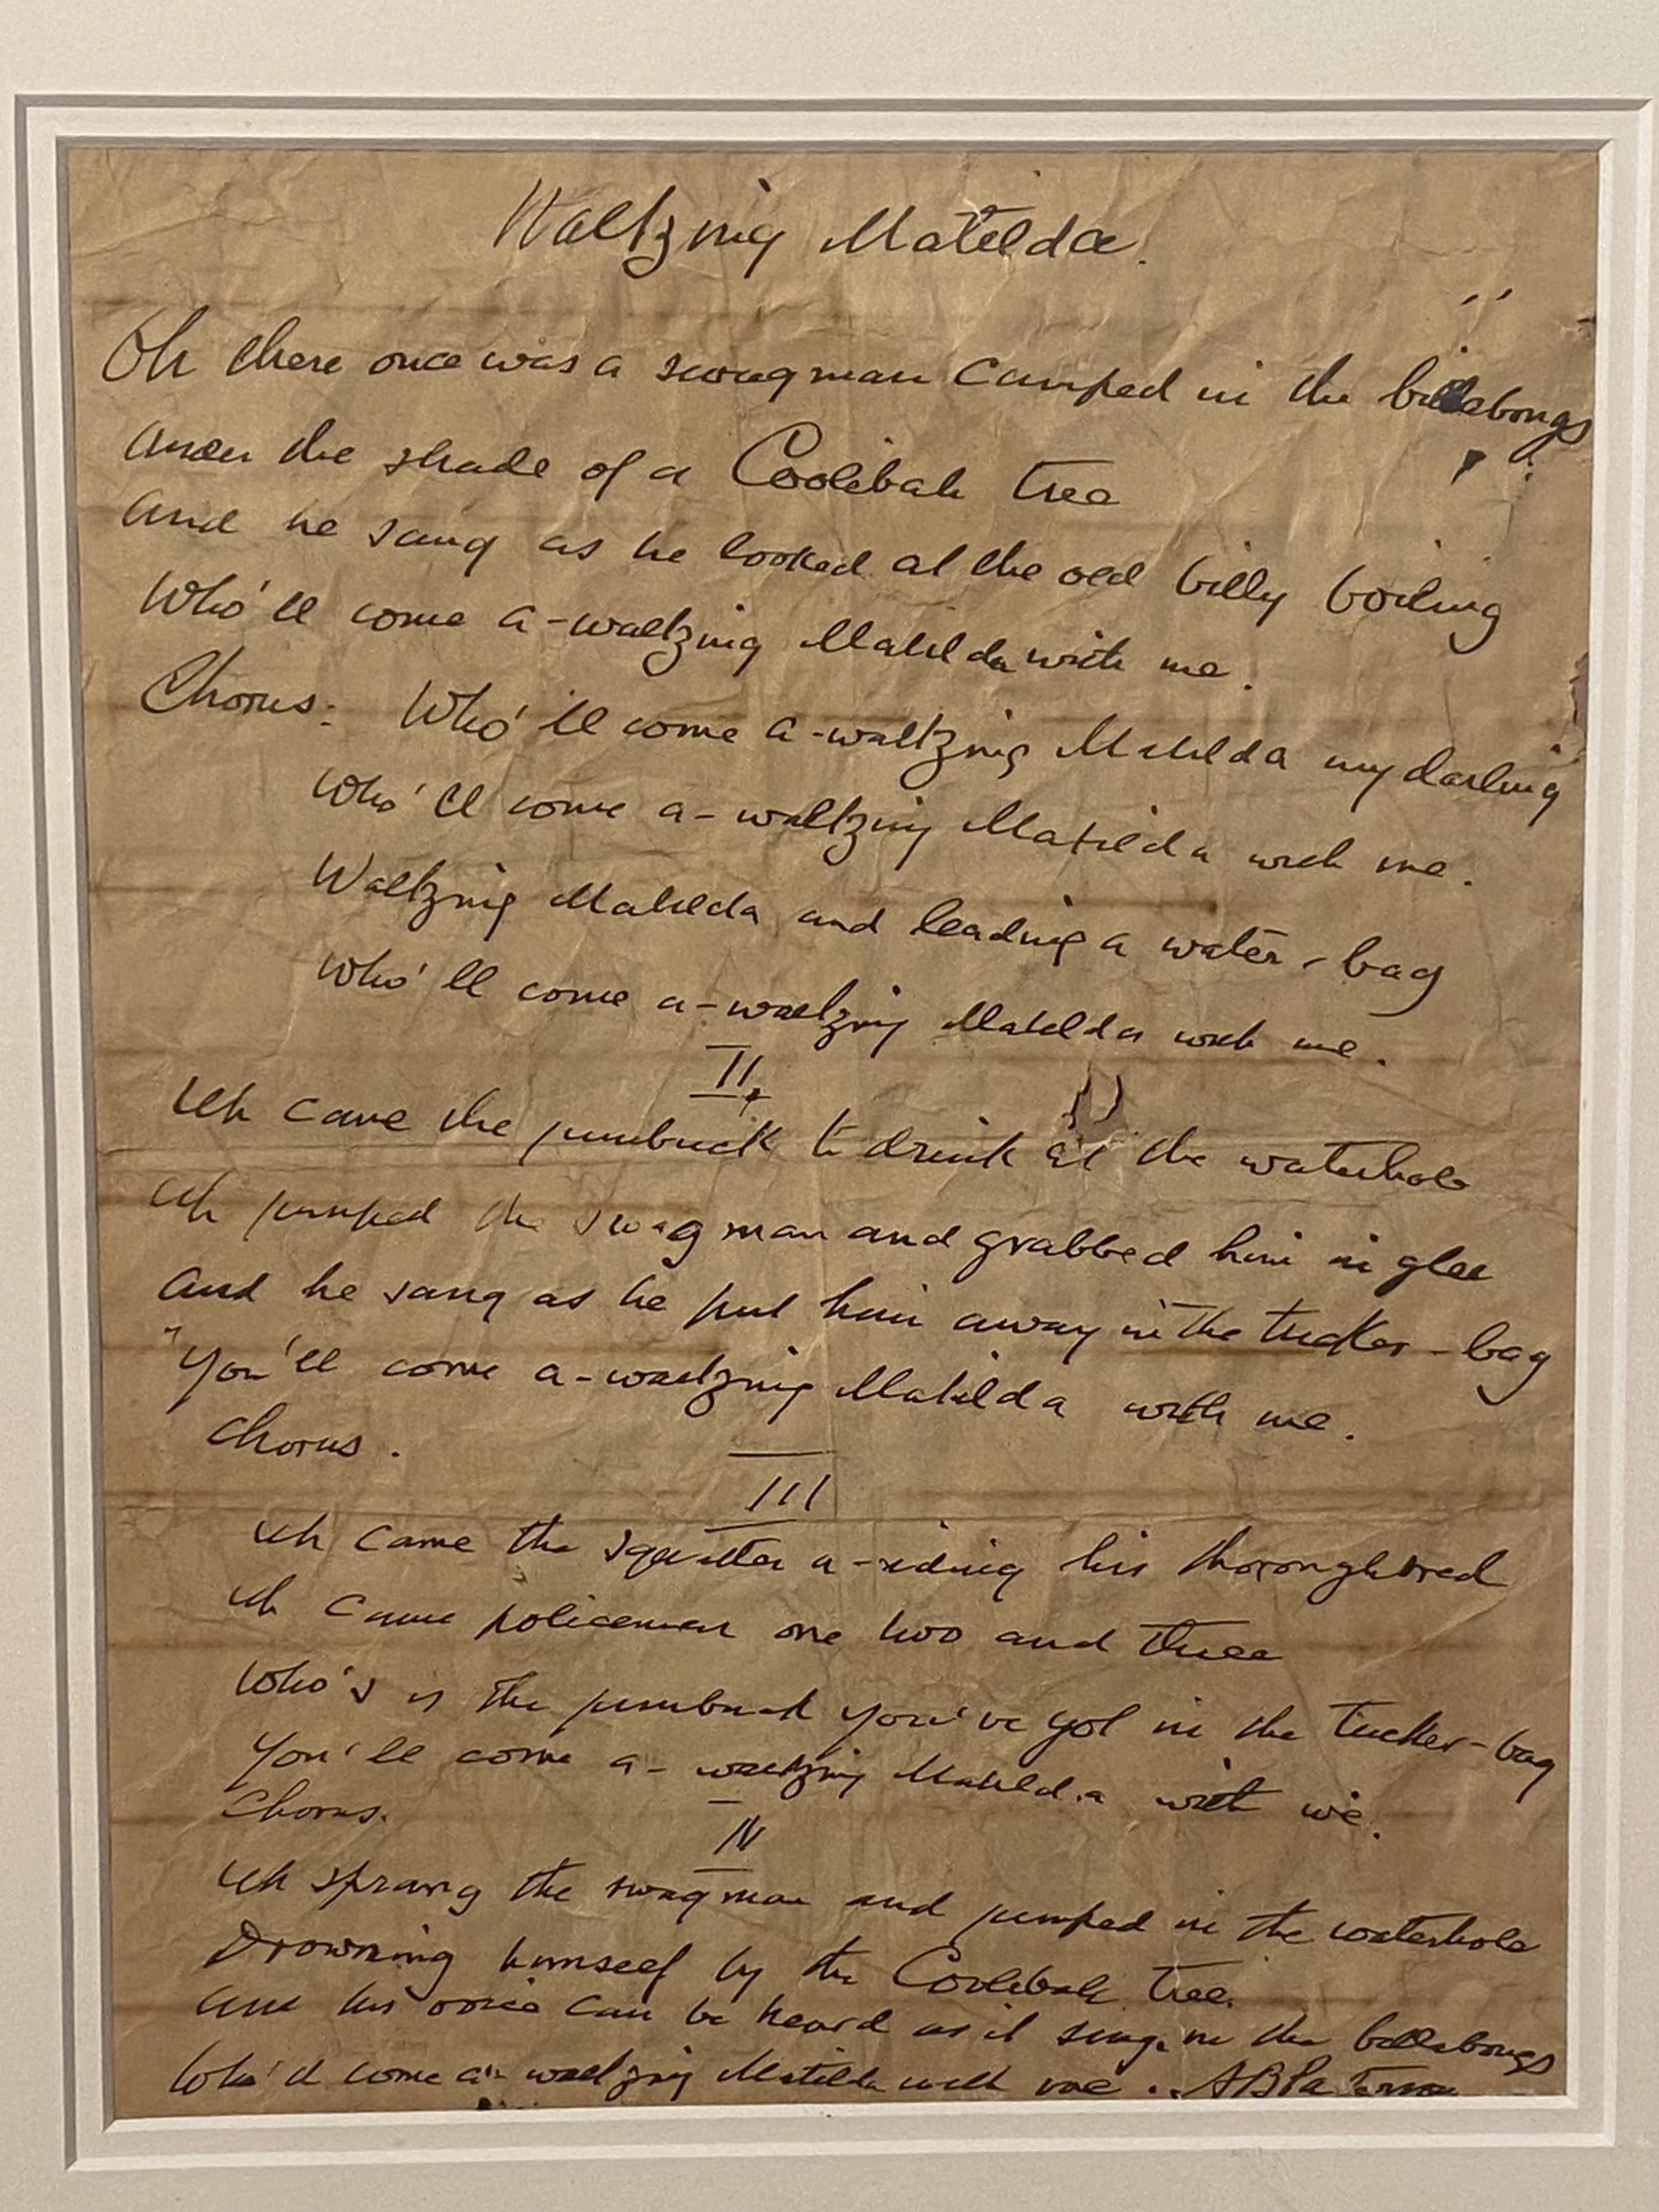 Waltzing Matilda.
Oh there once was a swagman camped in the billabongs
Under the shade of a Coolibah tree
And he sang as he looked at the old billy boiling
Who'll come a-waltzing Matilda with me.
Chorus: Who'll come a-waltzing Matilda my darling
Who'll come a-waltzing Matilda with me.
Waltzing Matilda and leading a water-bag
Who'll come a-waltzing Matilda with me.
II
Up came the jumbuck to drink at the waterhole
Up jumped the swagman and grabbed him in glee
And he sang as he put him away in the tucker-bag
"You'll come a-waltzing Matilda with me.
Chorus.
III
Up came the squatter a-riding his thoroughbred
Up came policemen one two and three
Who's is the jumbuck you've got in the tucker-bag
You'll come a-waltzing Matilda with we.
Chorus.
IV
Up sprang the swagman and jumped in the waterhole
Drowning himself by the Coolibah tree.
And his voice can be heard as it sings in the billabongs
Who'll come a-waltzing Matilda with me. A B Paterson